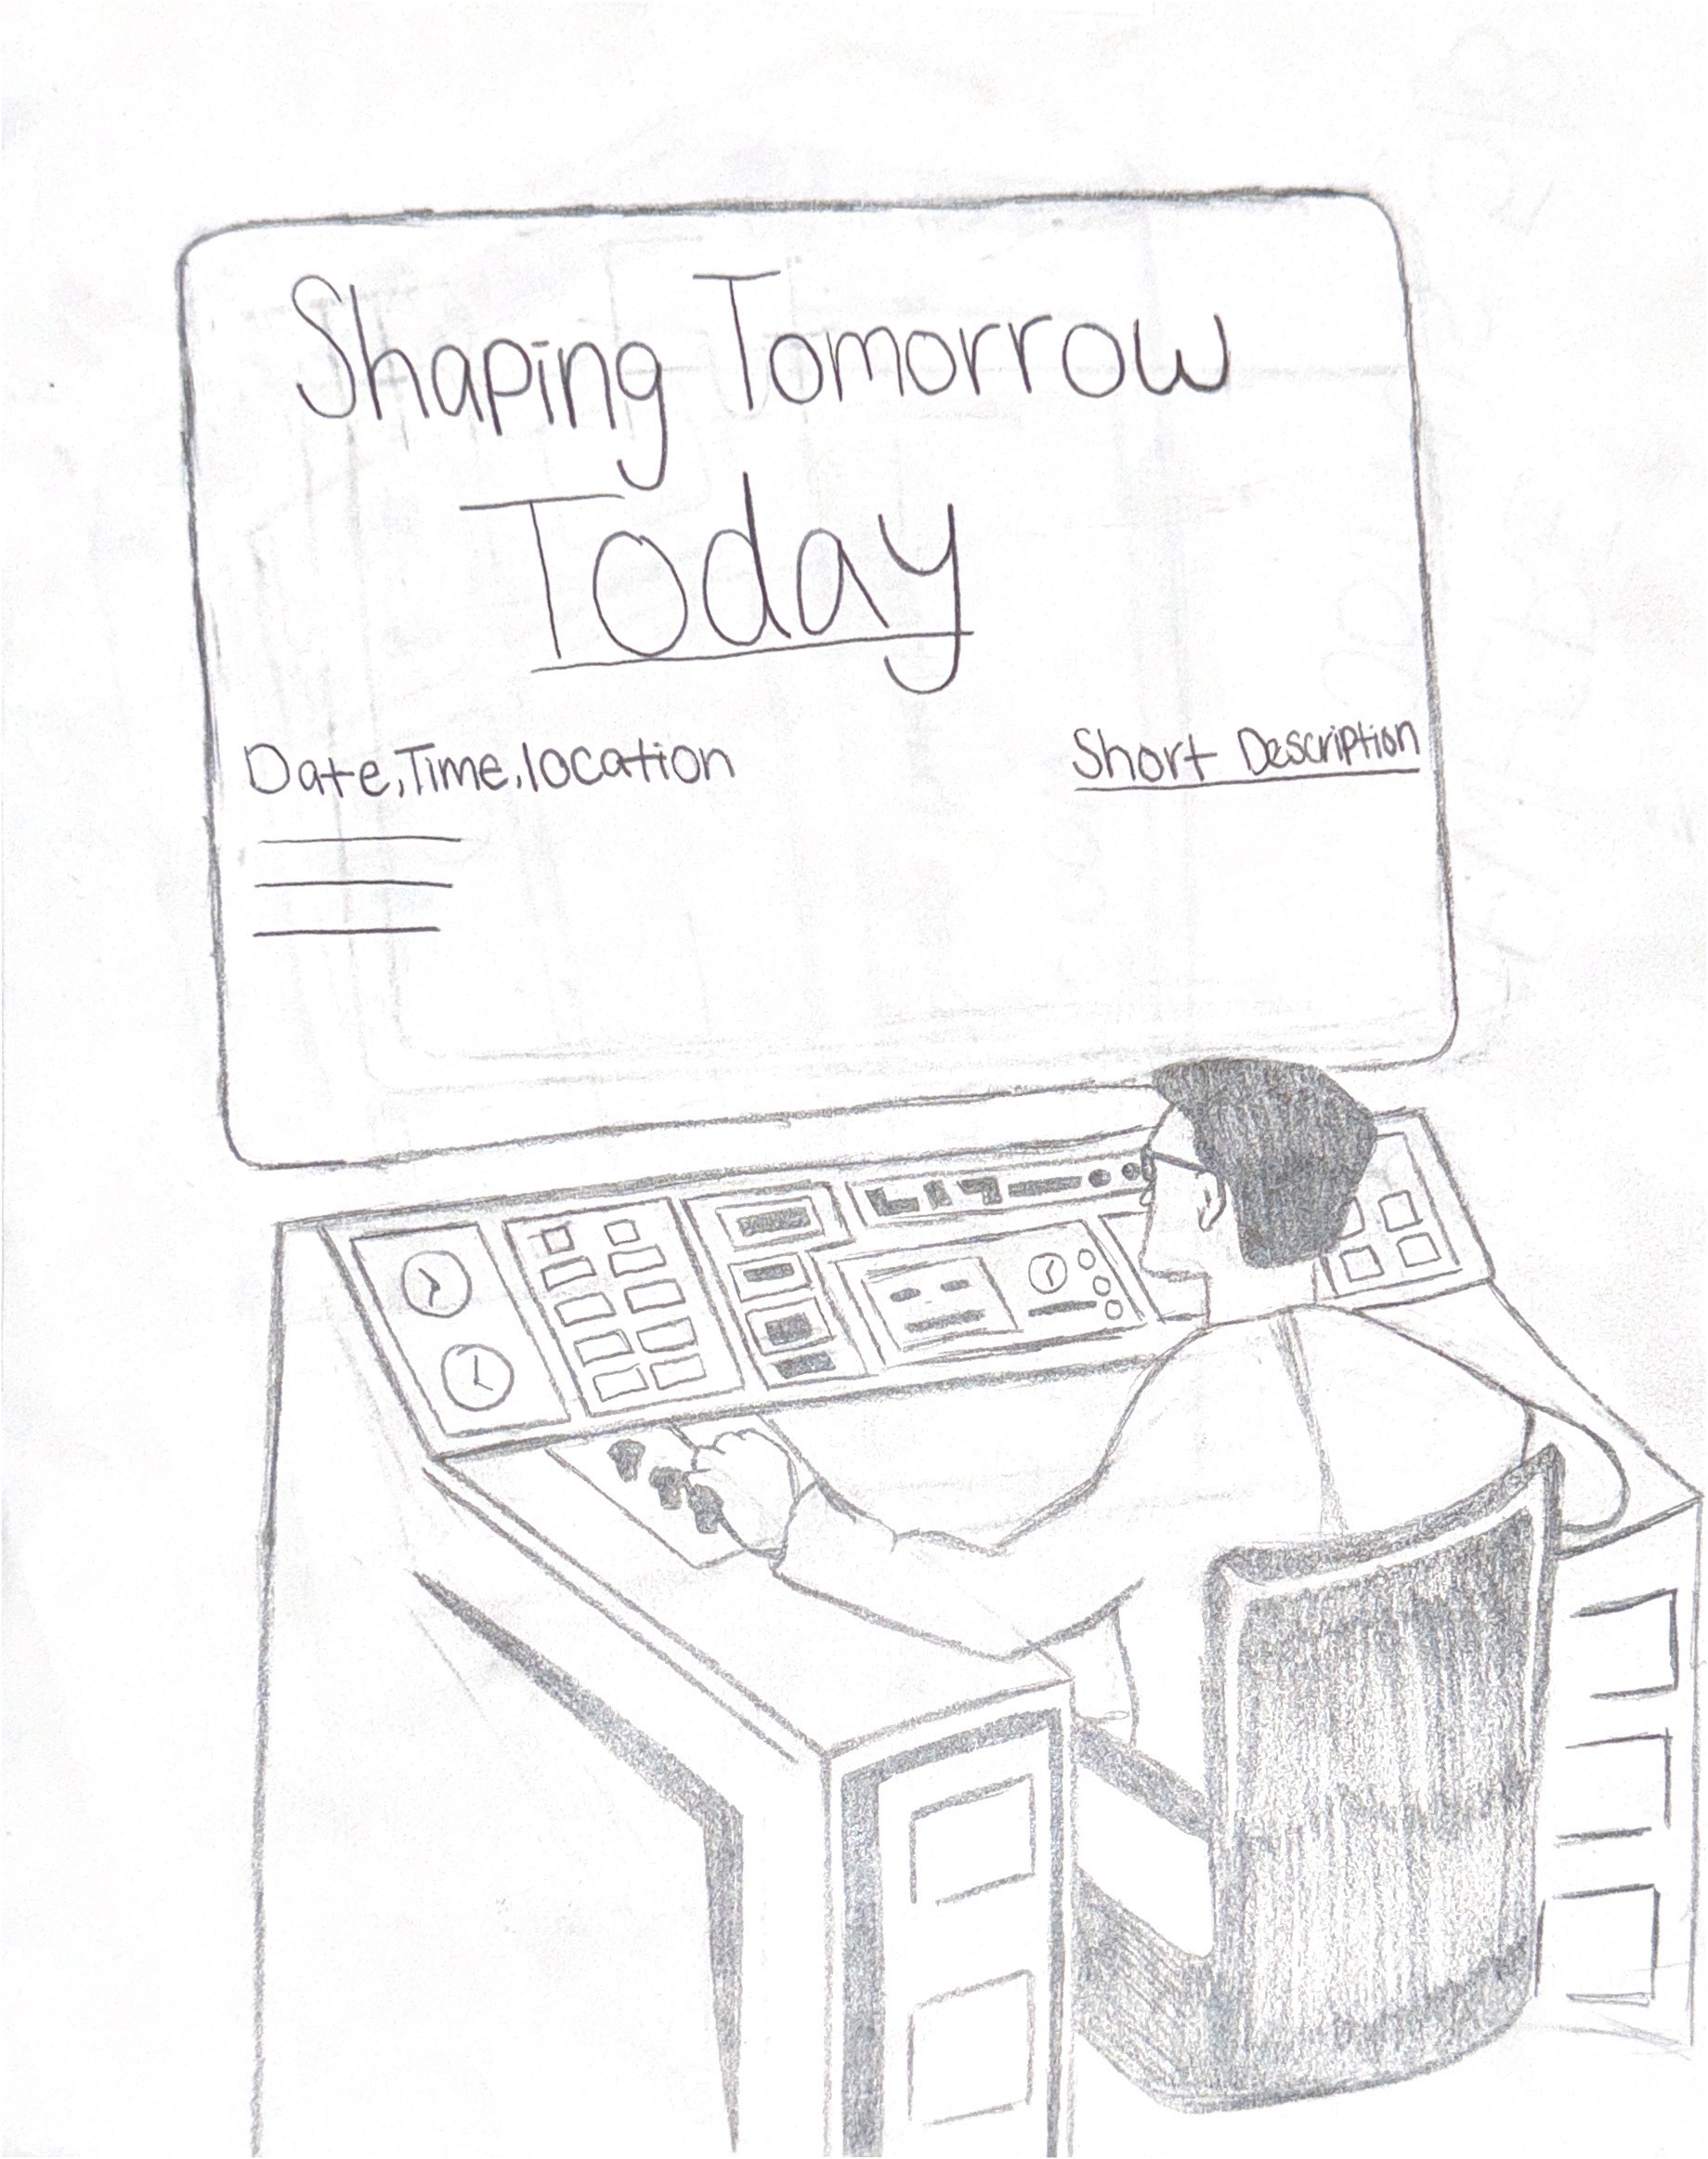 Shaping Tomorrow
Today
Date, Time, location
Short Description